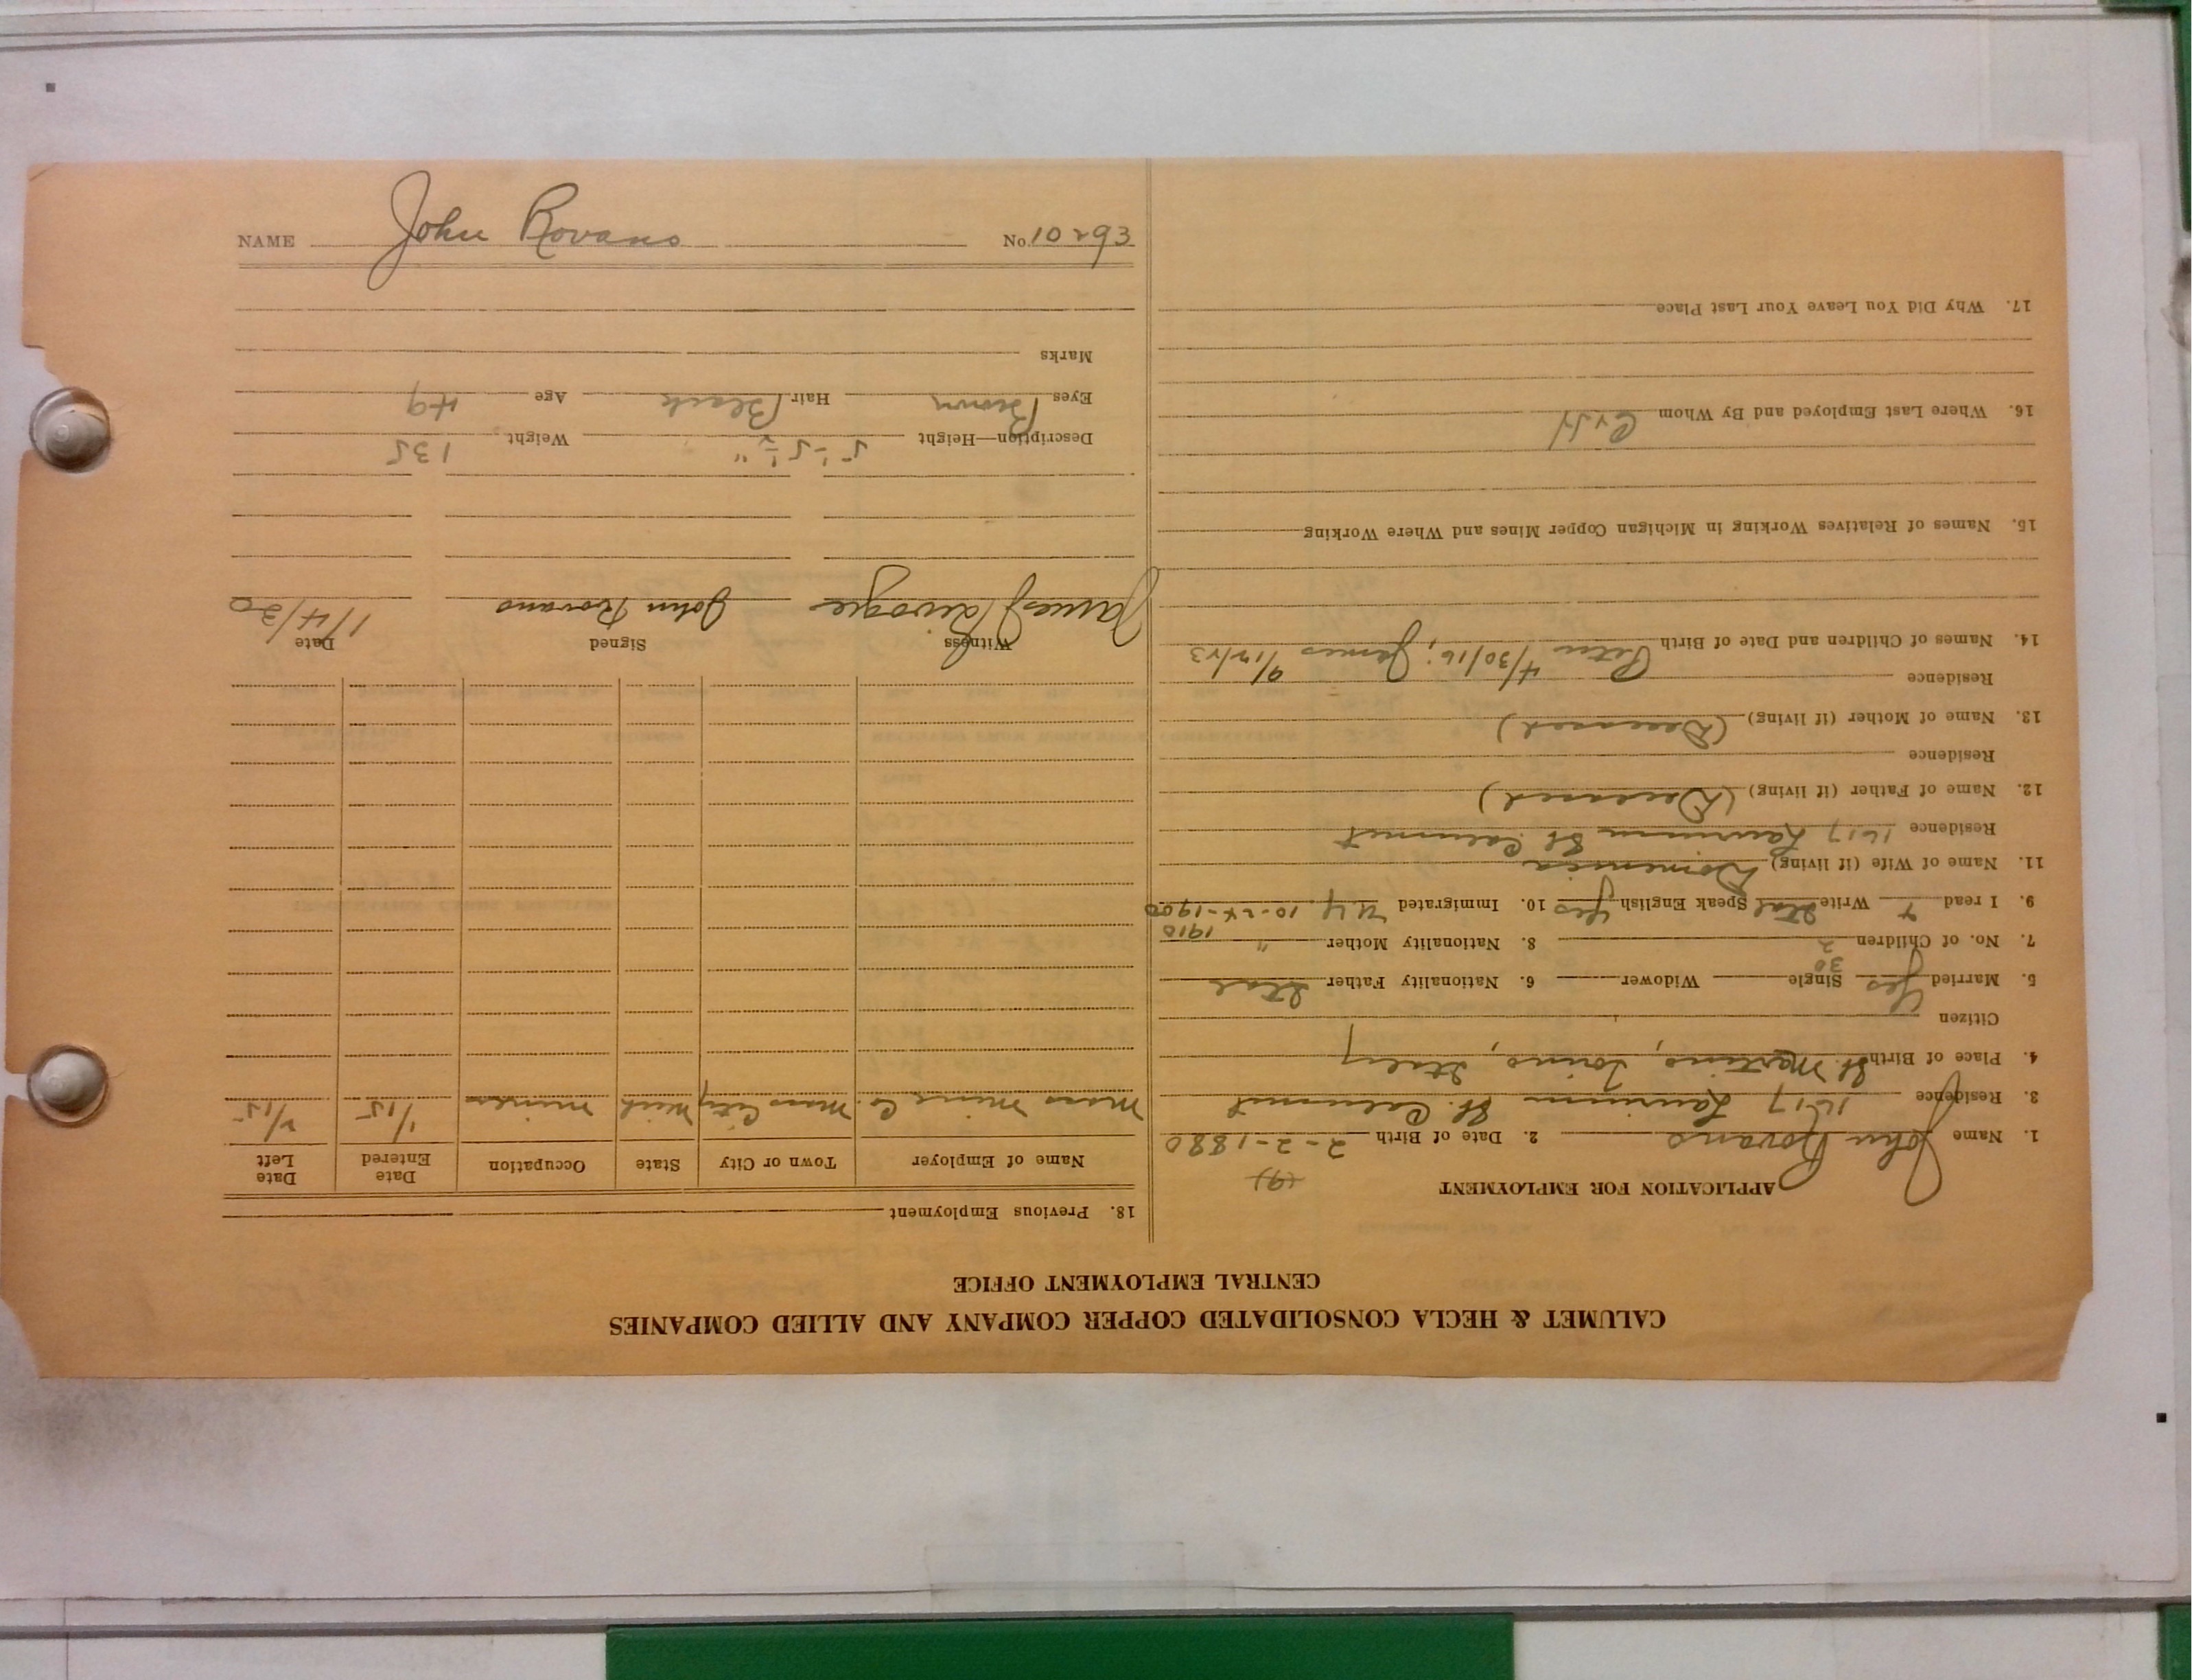 CALUMET & HECLA CONSOLIDATED COPPER COMPANY AND ALLIED COMPANIES
CENTRAL EMPLOYMENT OFFICE
APPLICATION FOR EMPLOYMENT (9)
1. Name John Rovano 2. Date of Birth 2-2-1880
3. Residence 1617 Laurium St. Calumet
4. Place of Birth St. Martino, Torino, Italy
Citizen
5. Married Yes Single Widower 6. Nationality Father Ital
30
7. No. of Children 2 8. Nationality Mother "
1910
9. I read & Write Ital Speak English Yes 10. Immigrated 10-24-1900
11. Name of Wife (if living) Domenica
Residence 1617 Laurium St. Calumet
12. Name of Father (if living) (Deceased)
Residence
13. Name of Mother (if living) (Deceased)
Residence
14. Names of Children and Date of Birth Peter 4/30/16; James 9/12/23
15. Names of Relatives Working in Michigan Copper Mines and Where Working
16. Where Last Employed and By Whom C & H
17. Why Did You Leave Your Last Place
18. Previous Employment
Name of Employer Town or City State Occupation Date Entered Date Left
Mass Mine Co. Mass City Mich miner 1/15 2/15
Witness Signed Date
James John Rovano 1/4/30
Description—Height 5'-5½" Weight 135
Eyes Brown Hair Black Age 49
Marks
NAME John Rovano No 10293